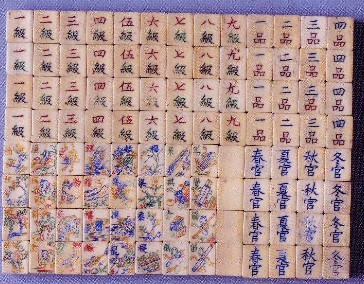 一級 二級 三級 四級 伍級 六級 七級 八級 九級 一品 二品 三品 四品
一級 二級 三級 四級 伍級 六級 七級 八級 九級 一品 二品 三品 四品
一級 二級 三級 四級 伍級 六級 七級 八級 九級 一品 二品 三品 四品
一級 二級 三級 四級 伍級 六級 七級 八級 九級 一品 二品 三品 四品
春官 夏官 秋官 冬官
春官 夏官 秋官 冬官
春官 夏官 秋官 冬官
春官 夏官 秋官 冬官